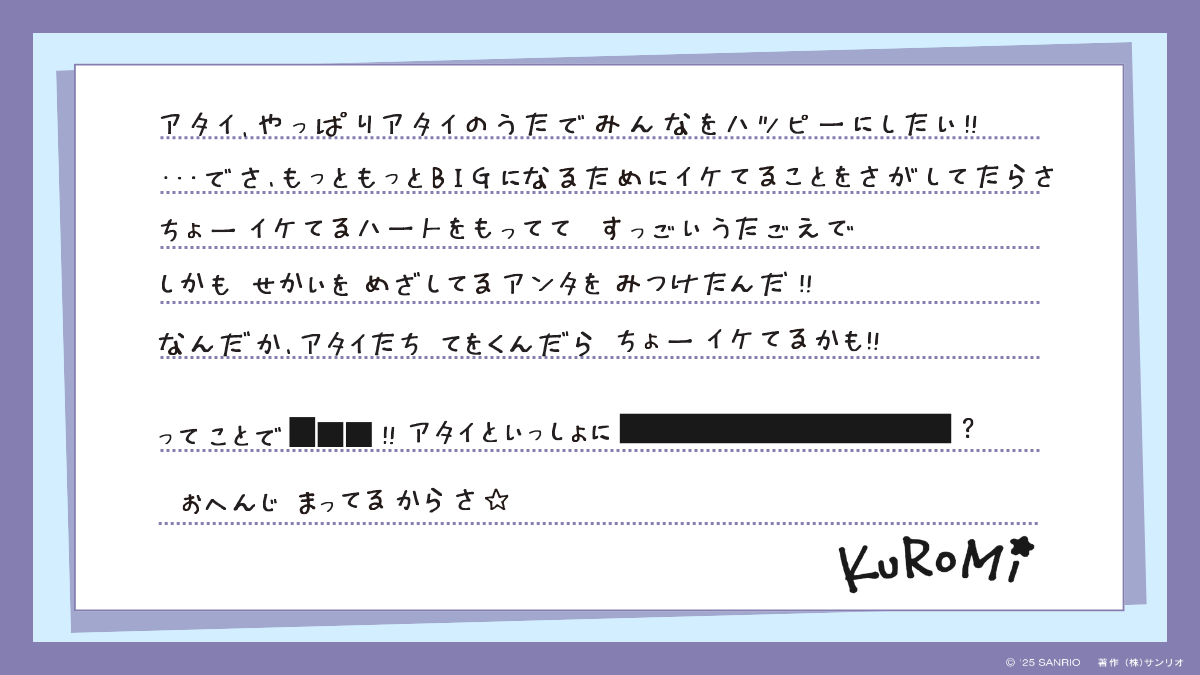 アタイ、やっぱりアタイのうたでみんなをハッピーにしたい!!
···でさ、もっともっとBIGになるためにイケてることをさがしてたらさ
ちょーイケてるハートをもってて すっごいうたごえで
しかも せかいを めざしてるアンタを みつけたんだ!!
なんだか、アタイたち てをくんだら ちょーイケてるかも!!
ってことで■■■!! アタイといっしょに ?
おへんじ まってるからさ☆
KUROMi
© '25 SANRIO 著作 (株)サンリオ